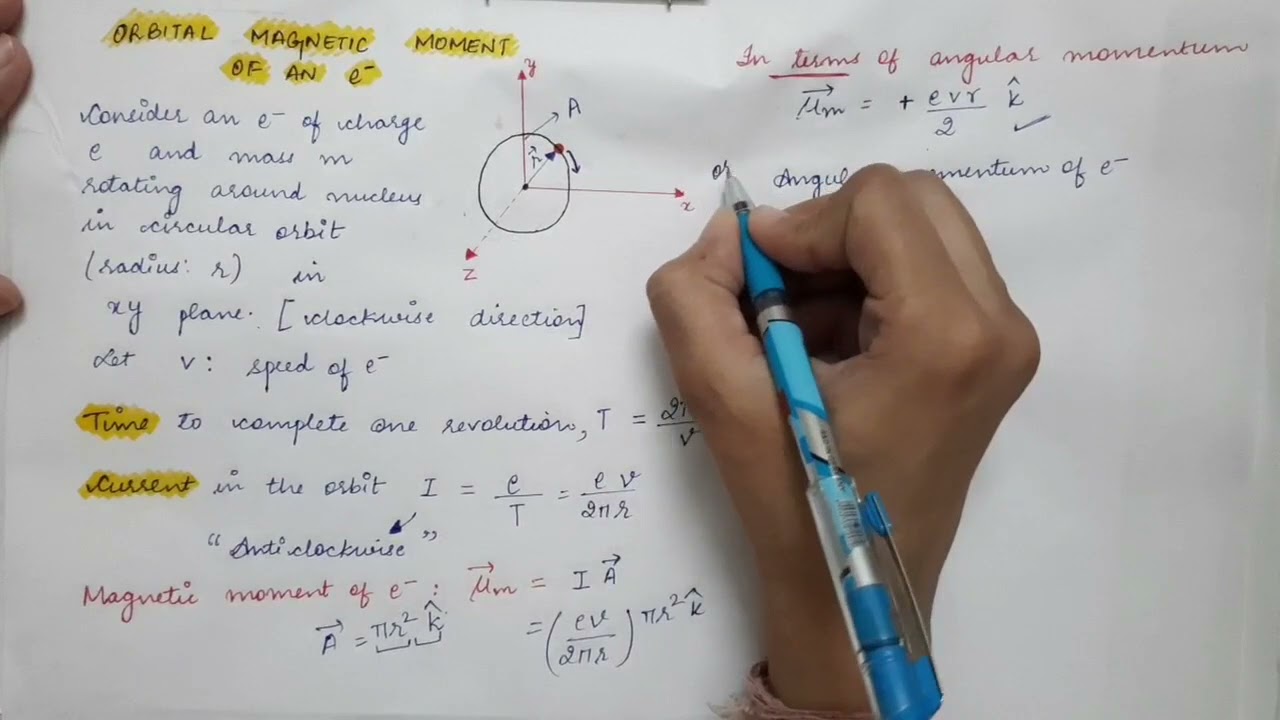 ORBITAL MAGNETIC MOMENT
OF AN e⁻
Consider an e⁻ of charge
e and mass m
rotating around nucleus
in circular orbit
(radius: r) in
xy plane. [clockwise direction]
Let v: speed of e⁻
Time to complete one revolution, T =
v
Current in the orbit I = e/T = ev/2πr
"Anticlockwise"
Magnetic moment of e⁻: μ⃗m = I A⃗
A⃗ = πr² k̂
= (ev/2πr) πr² k̂
y
A
r⃗
x
Z
In terms of angular momentum
μ⃗m = + evr/2 k̂ ✓
of e⁻